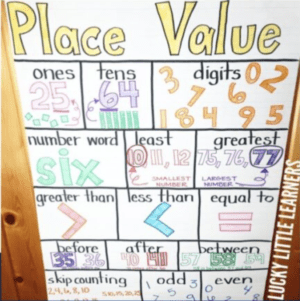 Place Value
ones tens digits 0 2
25 64 3 7 6
1 8 4 9 5
number word least greatest
six 10, 11, 12 75, 76, 77
SMALLEST NUMBER LARGEST NUMBER
greater than less than equal to
> < =
before after between
35 36
skip counting odd 3 even
2, 4, 6, 8, 10 5, 10, 15, 20, 25
LUCKY LITTLE LEARNERS